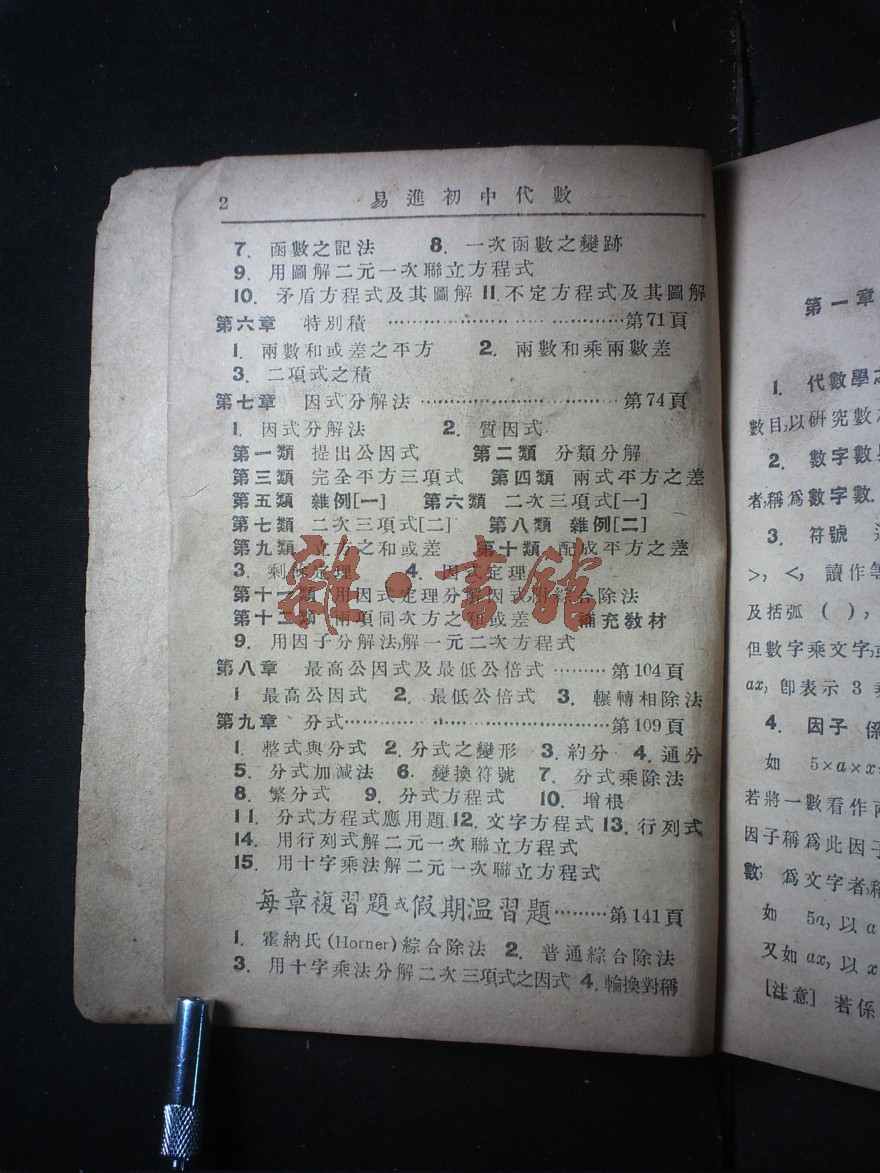 2 易進初中代數
7. 函數之記法 8. 一次函數之變跡
9. 用圖解二元一次聯立方程式
10. 矛盾方程式及其圖解 11. 不定方程式及其圖解
第六章 特別積 ……………………………第71頁
1. 兩數和或差之平方 2. 兩數和乘兩數差
3. 二項式之積
第七章 因式分解法 ……………………… 第74頁
1. 因式分解法 2. 質因式
第一類 提出公因式 第二類 分類分解
第三類 完全平方三項式 第四類 兩式平方之差
第五類 雜例[一] 第六類 二次三項式[一]
第七類 二次三項式[二] 第八類 雜例[二]
第九類 立方之和或差 第十類 配成平方之差
3. 剩餘定理 4. 因式定理
第十一類 用因式定理分解因式附綜合除法
第十二類 兩項同次方之和或差 補充教材
9. 用因子分解法,解一元二次方程式
第八章 最高公因式及最低公倍式 ……… 第104頁
1 最高公因式 2. 最低公倍式 3. 輾轉相除法
第九章 分式……………………………………第109頁
1. 整式與分式 2. 分式之變形 3. 約分 4. 通分
5. 分式加減法 6. 變換符號 7. 分式乘除法
8. 繁分式 9. 分式方程式 10. 增根
11. 分式方程式應用題 12. 文字方程式 13. 行列式
14. 用行列式解二元一次聯立方程式
15. 用十字乘法解二元一次聯立方程式
每章複習題或假期溫習題………第141頁
1. 霍納氏(Horner)綜合除法 2. 普通綜合除法
3. 用十字乘法分解二次三項式之因式 4. 輪換對稱
雜·書館
第一章
1. 代數學之
數目,以研究數
2. 數字數
者,稱爲數字數.
3. 符號
>, <, 讀作等
及括弧 ( ),
但數字乘文字,
ax, 卽表示 3 乘
4. 因子 係
如 5×a×x
若將一數看作兩
因子稱爲此因子
數; 爲文字者,稱
如 5a, 以 a
又如 ax, 以 x
[注意] 若係